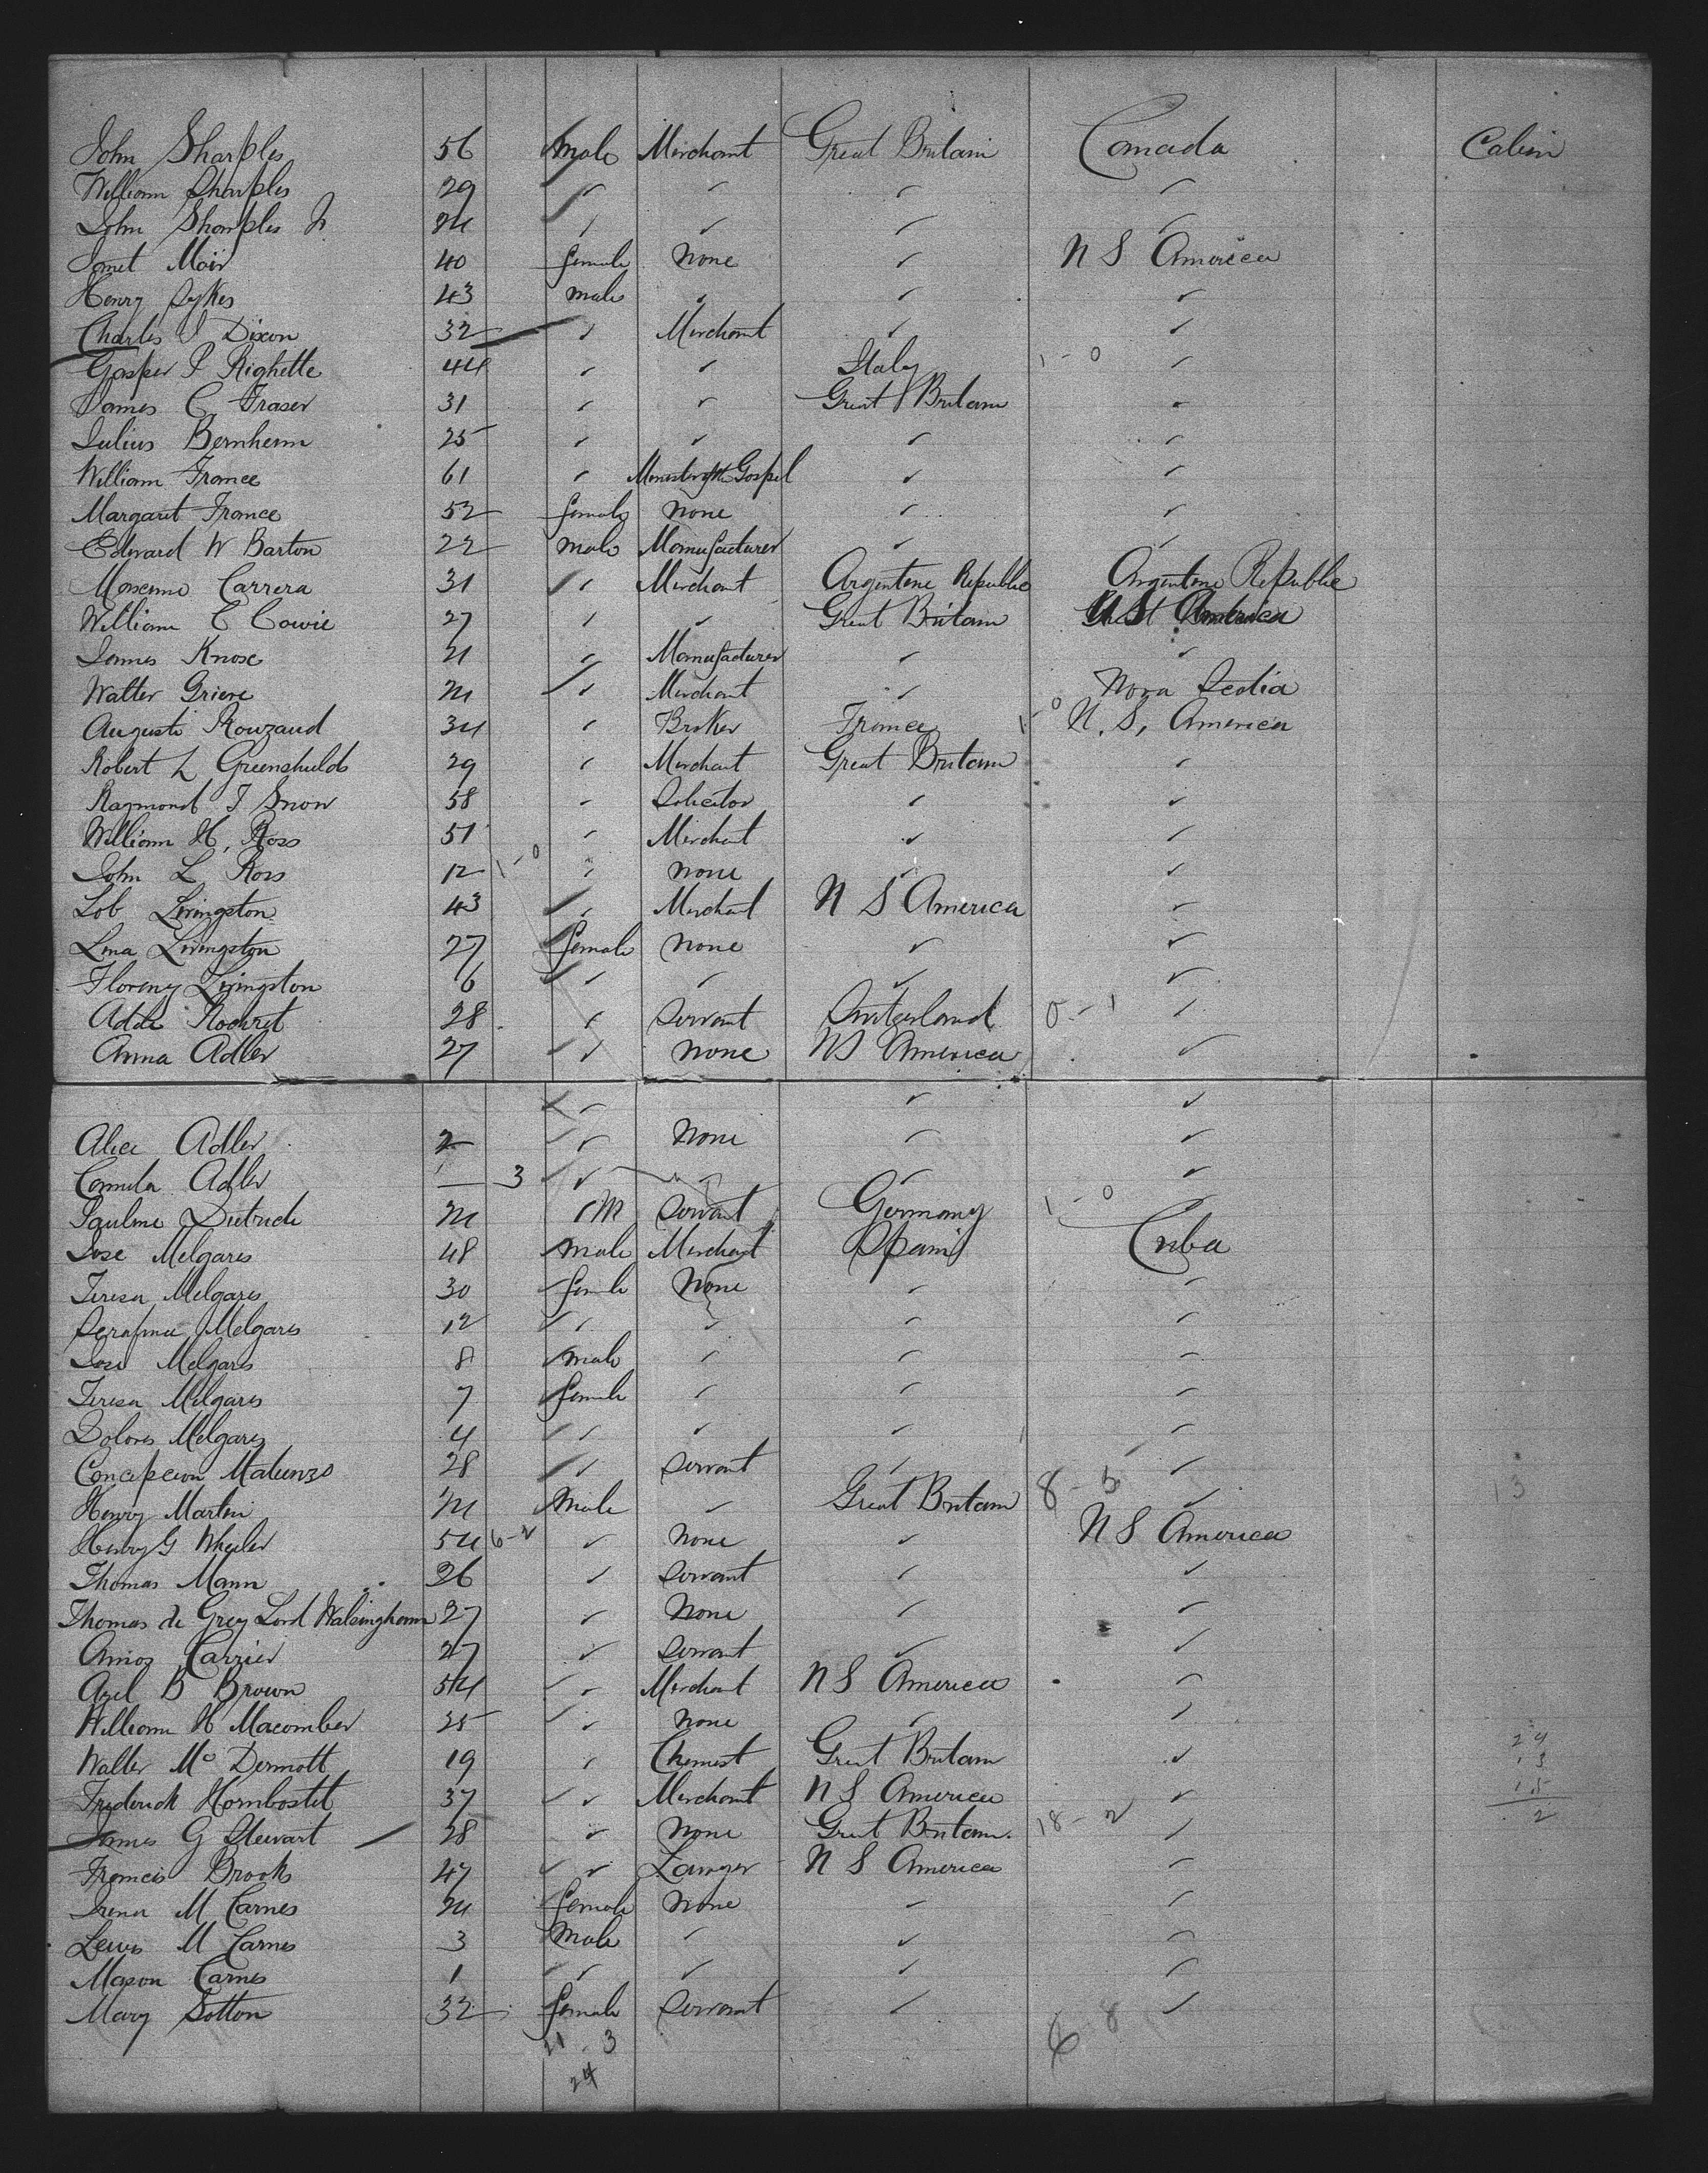 John Sharples 56 Male Merchant Great Britain Canada Cabin
William Sharples 29 " " " "
John Sharples Jr 24 " " " "
Janet Moir 40 female None " U S America
Henry Sykes 43 male " " "
Charles J Dixon 32 " Merchant " "
Gasper P Righette 44 " " Italy 1-0 "
James C Fraser 31 " " Great Britain "
Julius Bernheim 25 " " " "
William France 61 " Minister of the Gospel " "
Margaret France 52 female None " "
Edward W Barton 22 male Manufacturer " "
Carrera 31 " Merchant Argentine Republic Argentine Republic
William C Cowie 27 " " Great Britain U S America
James Knox 21 " Manufacturer " "
Walter Grieve 24 " Merchant " Nova Scotia
Auguste Rouzaud 34 " Broker France 1-0 U. S. America
Robert L Greenshields 29 " Merchant Great Britain "
Raymond T Snow 58 " Solicitor " "
William H. Ross 51 " Merchant " "
John L Ross 12 1-0 " None " "
Lob Livingston 43 " Merchant U S America "
Lina Livingston 27 female None " "
Livingston 6 " " " "
28 " Servant Switzerland 0-1 "
Anna Adler 27 " None U S America "
" " "
Alice Adler 2 " None " "
Camila Adler — 3 " " " "
Pauline Dietrich 24 " Servant Germany 1-0
Jose Melgares 48 male Merchant Spain Cuba
Teresa Melgares 30 female None " "
Serafina Melgares 12 " " " "
Jose Melgares 8 male " " "
Teresa Melgares 7 female " " "
Dolores Melgares 4 " " " "
Concepcion 28 " Servant " "
Henry Martin 24 Male " Great Britain 8-5 " 13
Henry G Wheeler 54 6-2 " None " U S America
Thomas Mann 26 " Servant " "
Thomas de Grey Lord Walsingham 27 " None " "
Amos Carrier 27 " Servant " "
Azel B Brown 54 " Merchant U S America "
William H Macomber 25 " None " "
Walter McDermott 19 " Chemist Great Britain " 24
Frederick Hornbostel 37 " Merchant U S America " 13
James G Stewart 28 " None Great Britain 18-2 " 15
Francis Brooks 47 " Lawyer U S America " 2
Irena M Carnes 24 female None " "
Lewis M Carnes 3 Male " " "
Mason Carnes 1 " " " "
Mary Sotton 32 female Servant " "
21 . 3 6-8
24